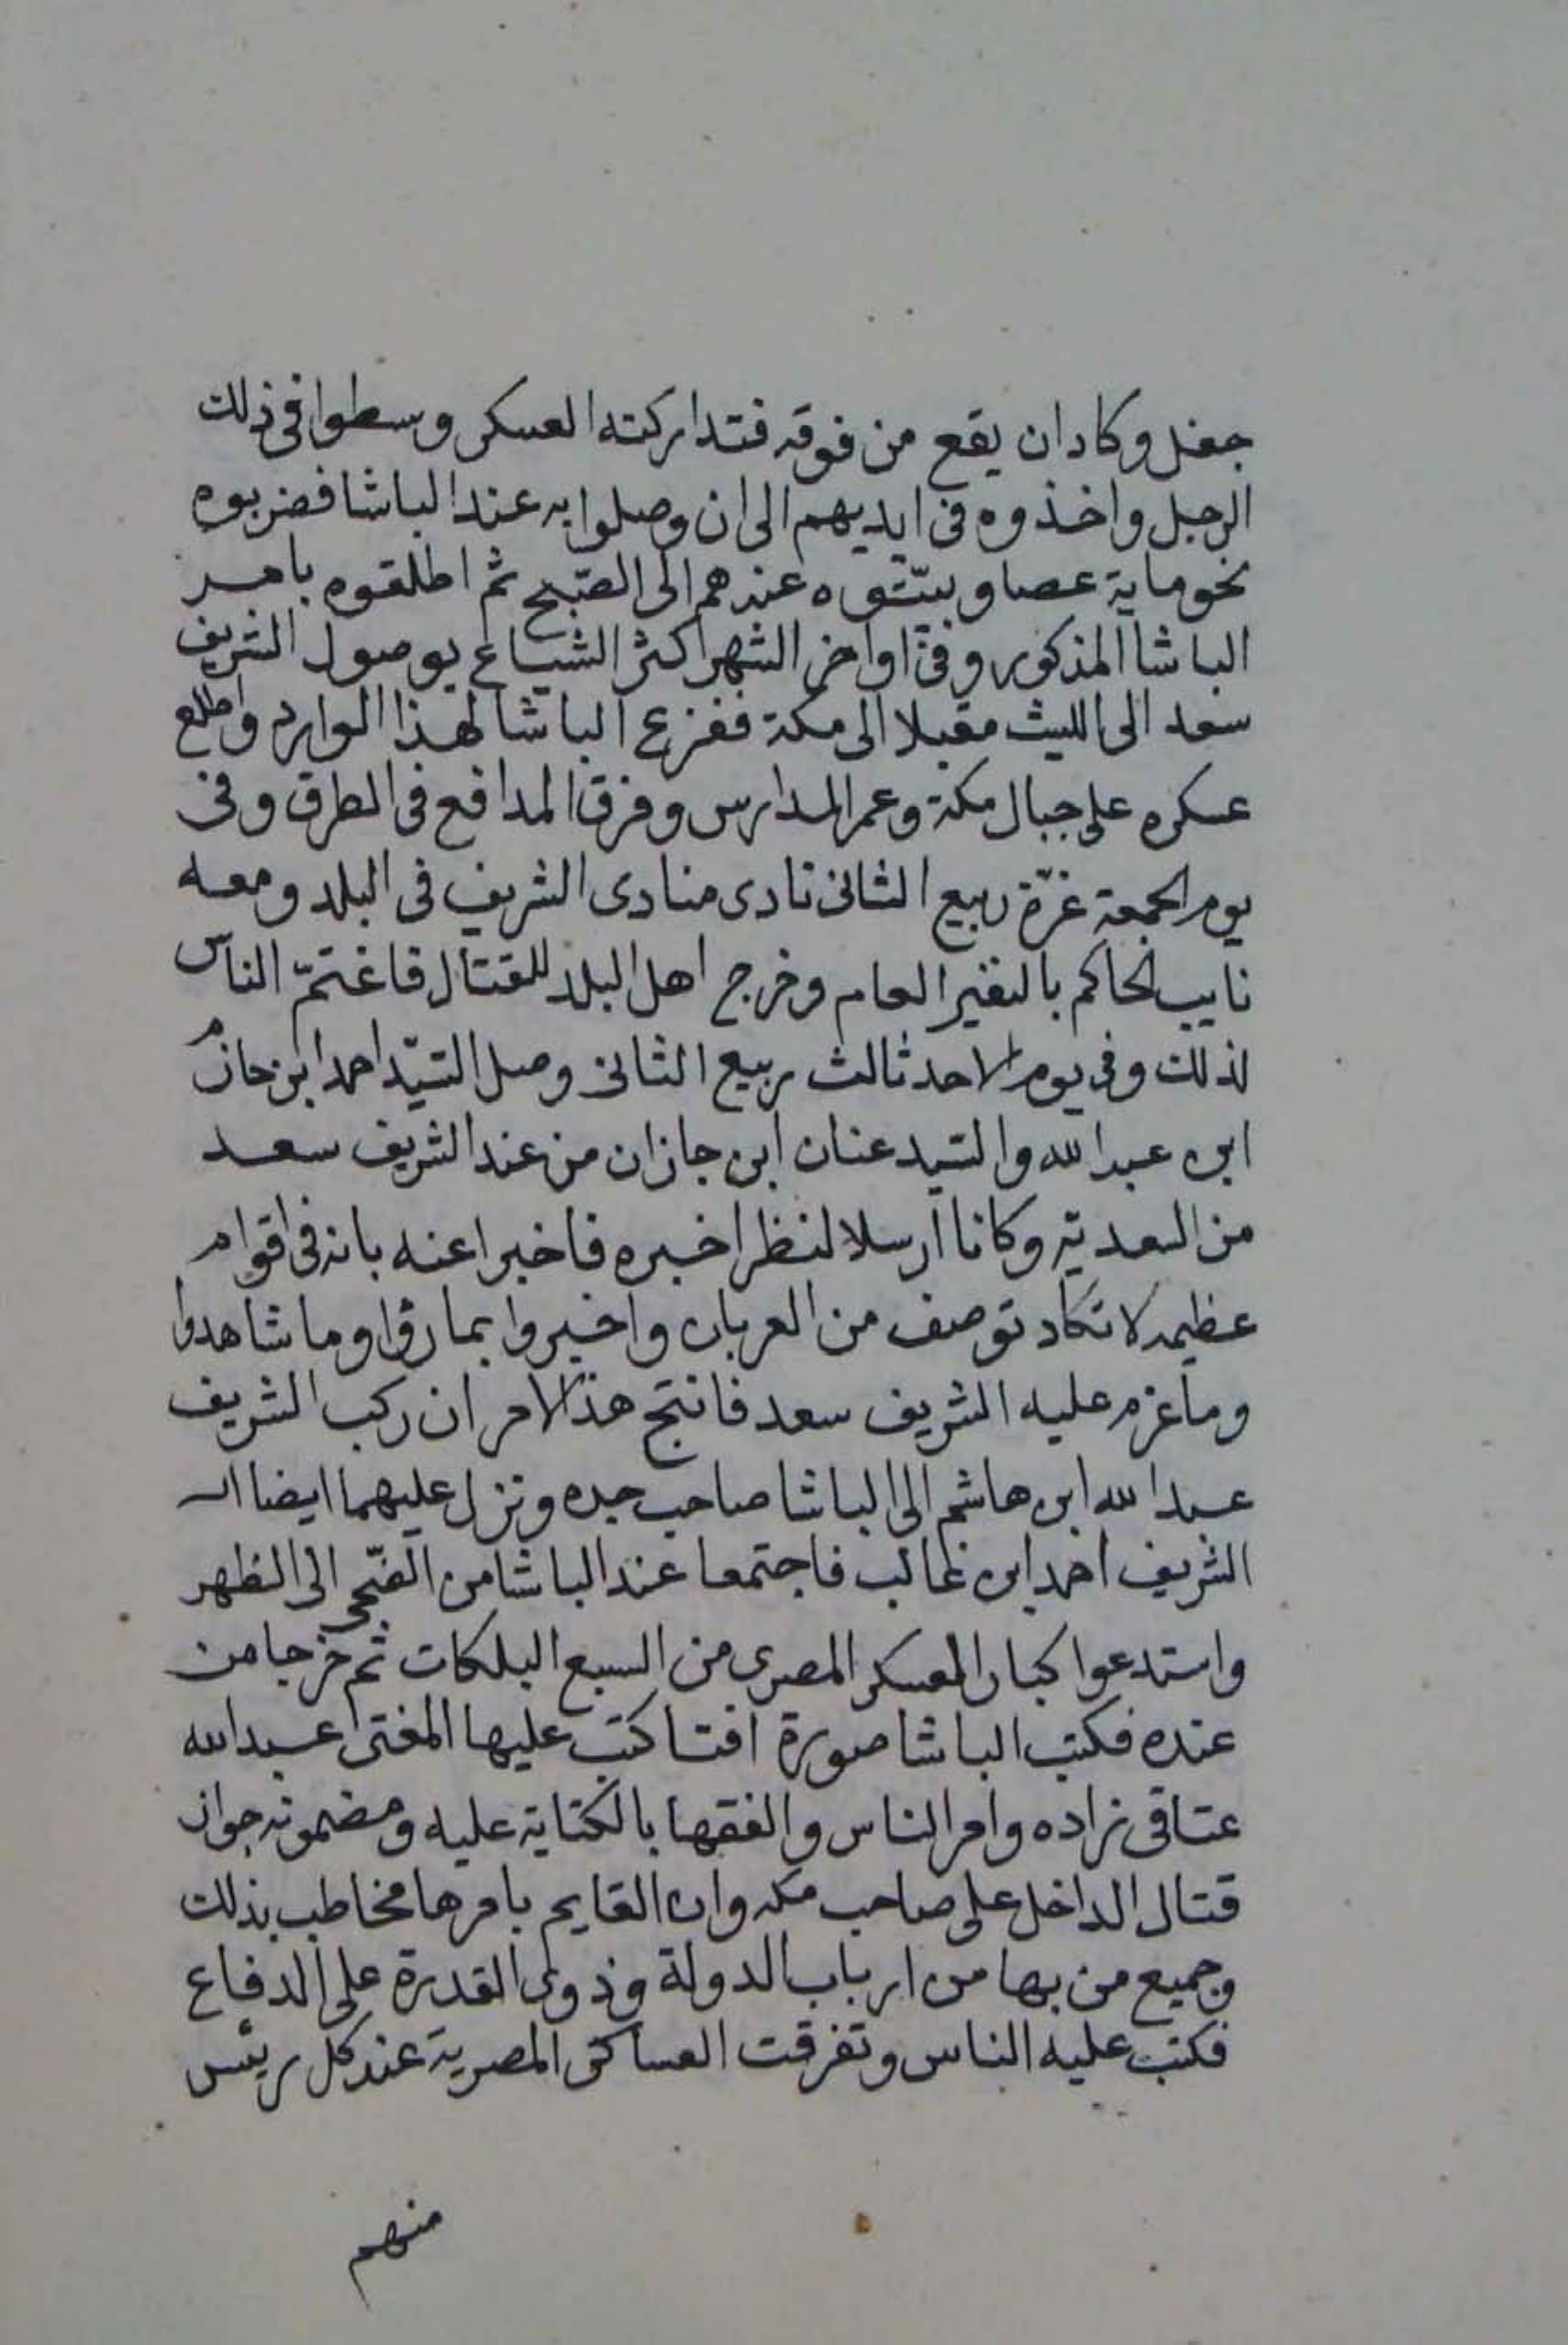 جفل وكادان يقع من فوقه فتداركته العسكر وسطوا فى ذلك
الرجل واخذوه فى ايديهم الى ان وصلوا به عند الباشا فضربوه
نحو ماية عصا وبيّتوه عندهم الى الصّبح ثم اطلقوه بامر
الباشا المذكور وفى اواخر الشهر اكثر الشياع بوصول الشريف
سعد الى الليث مقبلا الى مكة ففزع الباشا لهذا الوارد واطلع
عسكره على جبال مكة وعمر المدارس وفرق المدافع فى الطرق وفى
يوم الجمعة غرّة ربيع الثانى نادى منادى الشريف فى البلد ومعه
نايب الحاكم بالنفير العام وخرج اهل البلد للقتال فاغتمّ الناس
لذلك وفى يوم الاحد ثالث ربيع الثانى وصل السّيّد احمد ابن حازم
ابن عبد الله والسّيد عنان ابن جازان من عند الشريف سعد
من السعدية وكانا ارسلا لنظرا خبره فاخبرا عنه بانه فى اقوام
عظيمه لا تكاد توصف من العربان واخبروا بما رؤا وما شاهدوا
وما عزم عليه الشريف سعد فانتج هذا الامر ان ركب الشريف
عبد الله ابن هاشم الى الباشا صاحب جده ونزل عليهما ايضا الـ
الشريف احمد ابن غالب فاجتمعا عند الباشا من الضّحى الى الظهر
واستدعوا كبار العسكر المصرى من السبع البلكات ثم خرجا من
عنده فكتب الباشا صورة افتا كتب عليها المفتى عبد الله
عتاقى زاده وامر الناس والفقها بالكتابة عليه ومضمونه جواز
قتال الداخل على صاحب مكه وان القايم بامرها مخاطب بذلك
وجميع من بها من ارباب الدولة وذوى القدرة على الدفاع
فكتب عليه الناس وتفرقت العساكر المصرية عند كل ريئس
منهم